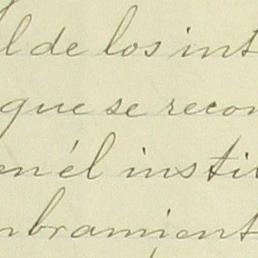 l de los int
que se recon
en él instit
nbramient